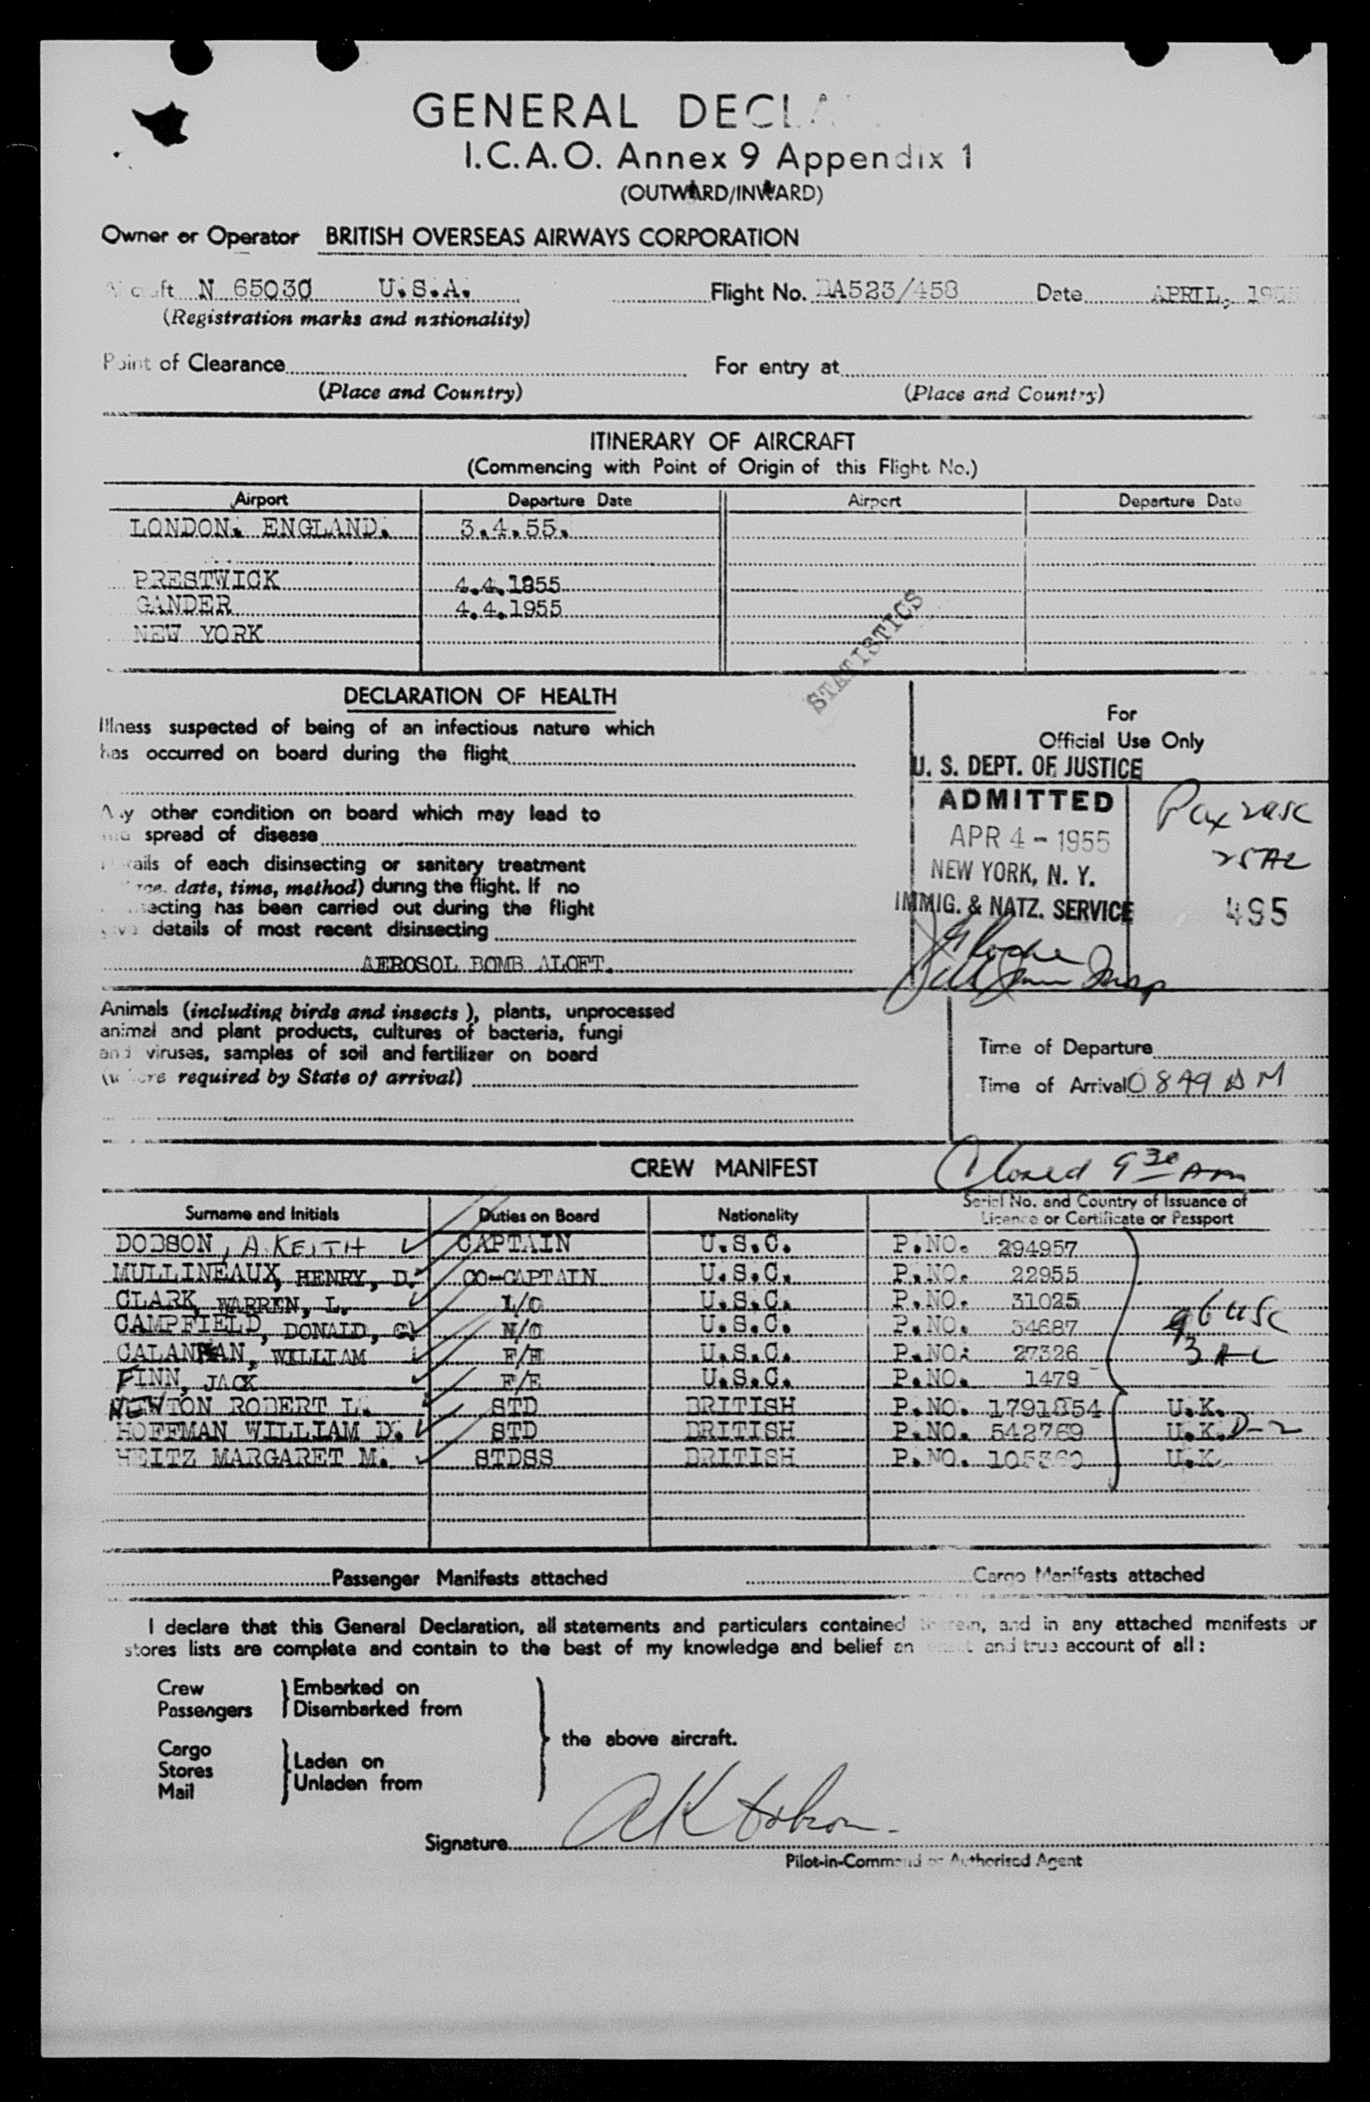 GENERAL DECLA
I.C.A.O. Annex 9 Appendix 1
(OUTWARD/INWARD)
Owner or Operator BRITISH OVERSEAS AIRWAYS CORPORATION
N 65030 U.S.A. Flight No. BA523/458 Date APRIL,
(Registration marks and nationality)
Point of Clearance For entry at
(Place and Country) (Place and Country)
ITINERARY OF AIRCRAFT
(Commencing with Point of Origin of this Flight No.)
Airport Departure Date Airport Departure Date
LONDON. ENGLAND. 3.4.55.
PRESTWICK 4.4.1955
GANDER 4.4.1955
NEW YORK
STATISTICS
DECLARATION OF HEALTH
Illness suspected of being of an infectious nature which
has occurred on board during the flight
Any other condition on board which may lead to
spread of disease
of each disinsecting or sanitary treatment
date, time, method) during the flight. If no
has been carried out during the flight
details of most recent disinsecting
AEROSOL BOMB ALOFT.
For
Official Use Only
U. S. DEPT. OF JUSTICE
ADMITTED
APR 4 - 1955
NEW YORK, N. Y.
IMMIG. & NATZ. SERVICE
Pax
495
Animals (including birds and insects), plants, unprocessed
animal and plant products, cultures of bacteria, fungi
and viruses, samples of soil and fertilizer on board
(where required by State of arrival)
Time of Departure
Time of Arrival 0849 AM
Closed 9 30 Am
CREW MANIFEST
Surname and Initials Duties on Board Nationality Serial No. and Country of Issuance of Licence or Certificate or Passport
DOBSON, A. KEITH CAPTAIN U.S.C. P.NO. 294957
MULLINEAUX, HENRY, D. CO-CAPTAIN U.S.C. P.NO. 22955
CLARK, WARREN, L. U.S.C. P.NO. 31025
CAMPFIELD, DONALD, N/O U.S.C. P.NO. 34687
WILLIAM F/E U.S.C. P.NO. 27326
FINN, JACK F/E U.S.C. P.NO. 1479
NEWTON ROBERT L. STD BRITISH P.NO. 1791854 U.K.
HOFFMAN WILLIAM D. STD BRITISH P.NO. 542769 U.K. D-2
HEITZ MARGARET M. STDSS BRITISH P.NO. U.K.
6 USC
3 AL
Passenger Manifests attached Cargo Manifests attached
I declare that this General Declaration, all statements and particulars contained therein, and in any attached manifests or
stores lists are complete and contain to the best of my knowledge and belief an and true account of all:
Crew Embarked on
Passengers Disembarked from
the above aircraft.
Cargo
Stores Laden on
Mail Unladen from
Signature AK Dobson
Pilot-in-Command or Authorised Agent